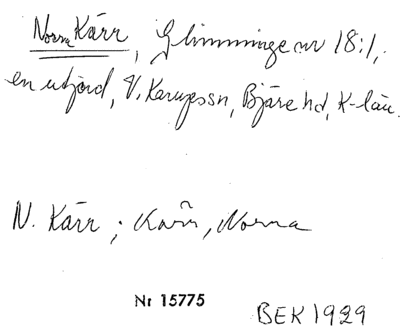 Norra Kärr, Glimminge nr 18:1,
en utjord, V. Karups sn, Bjäre hd, K-län.
N. Kärr; Kärr, Norra
Nr 15775
BEK 1929